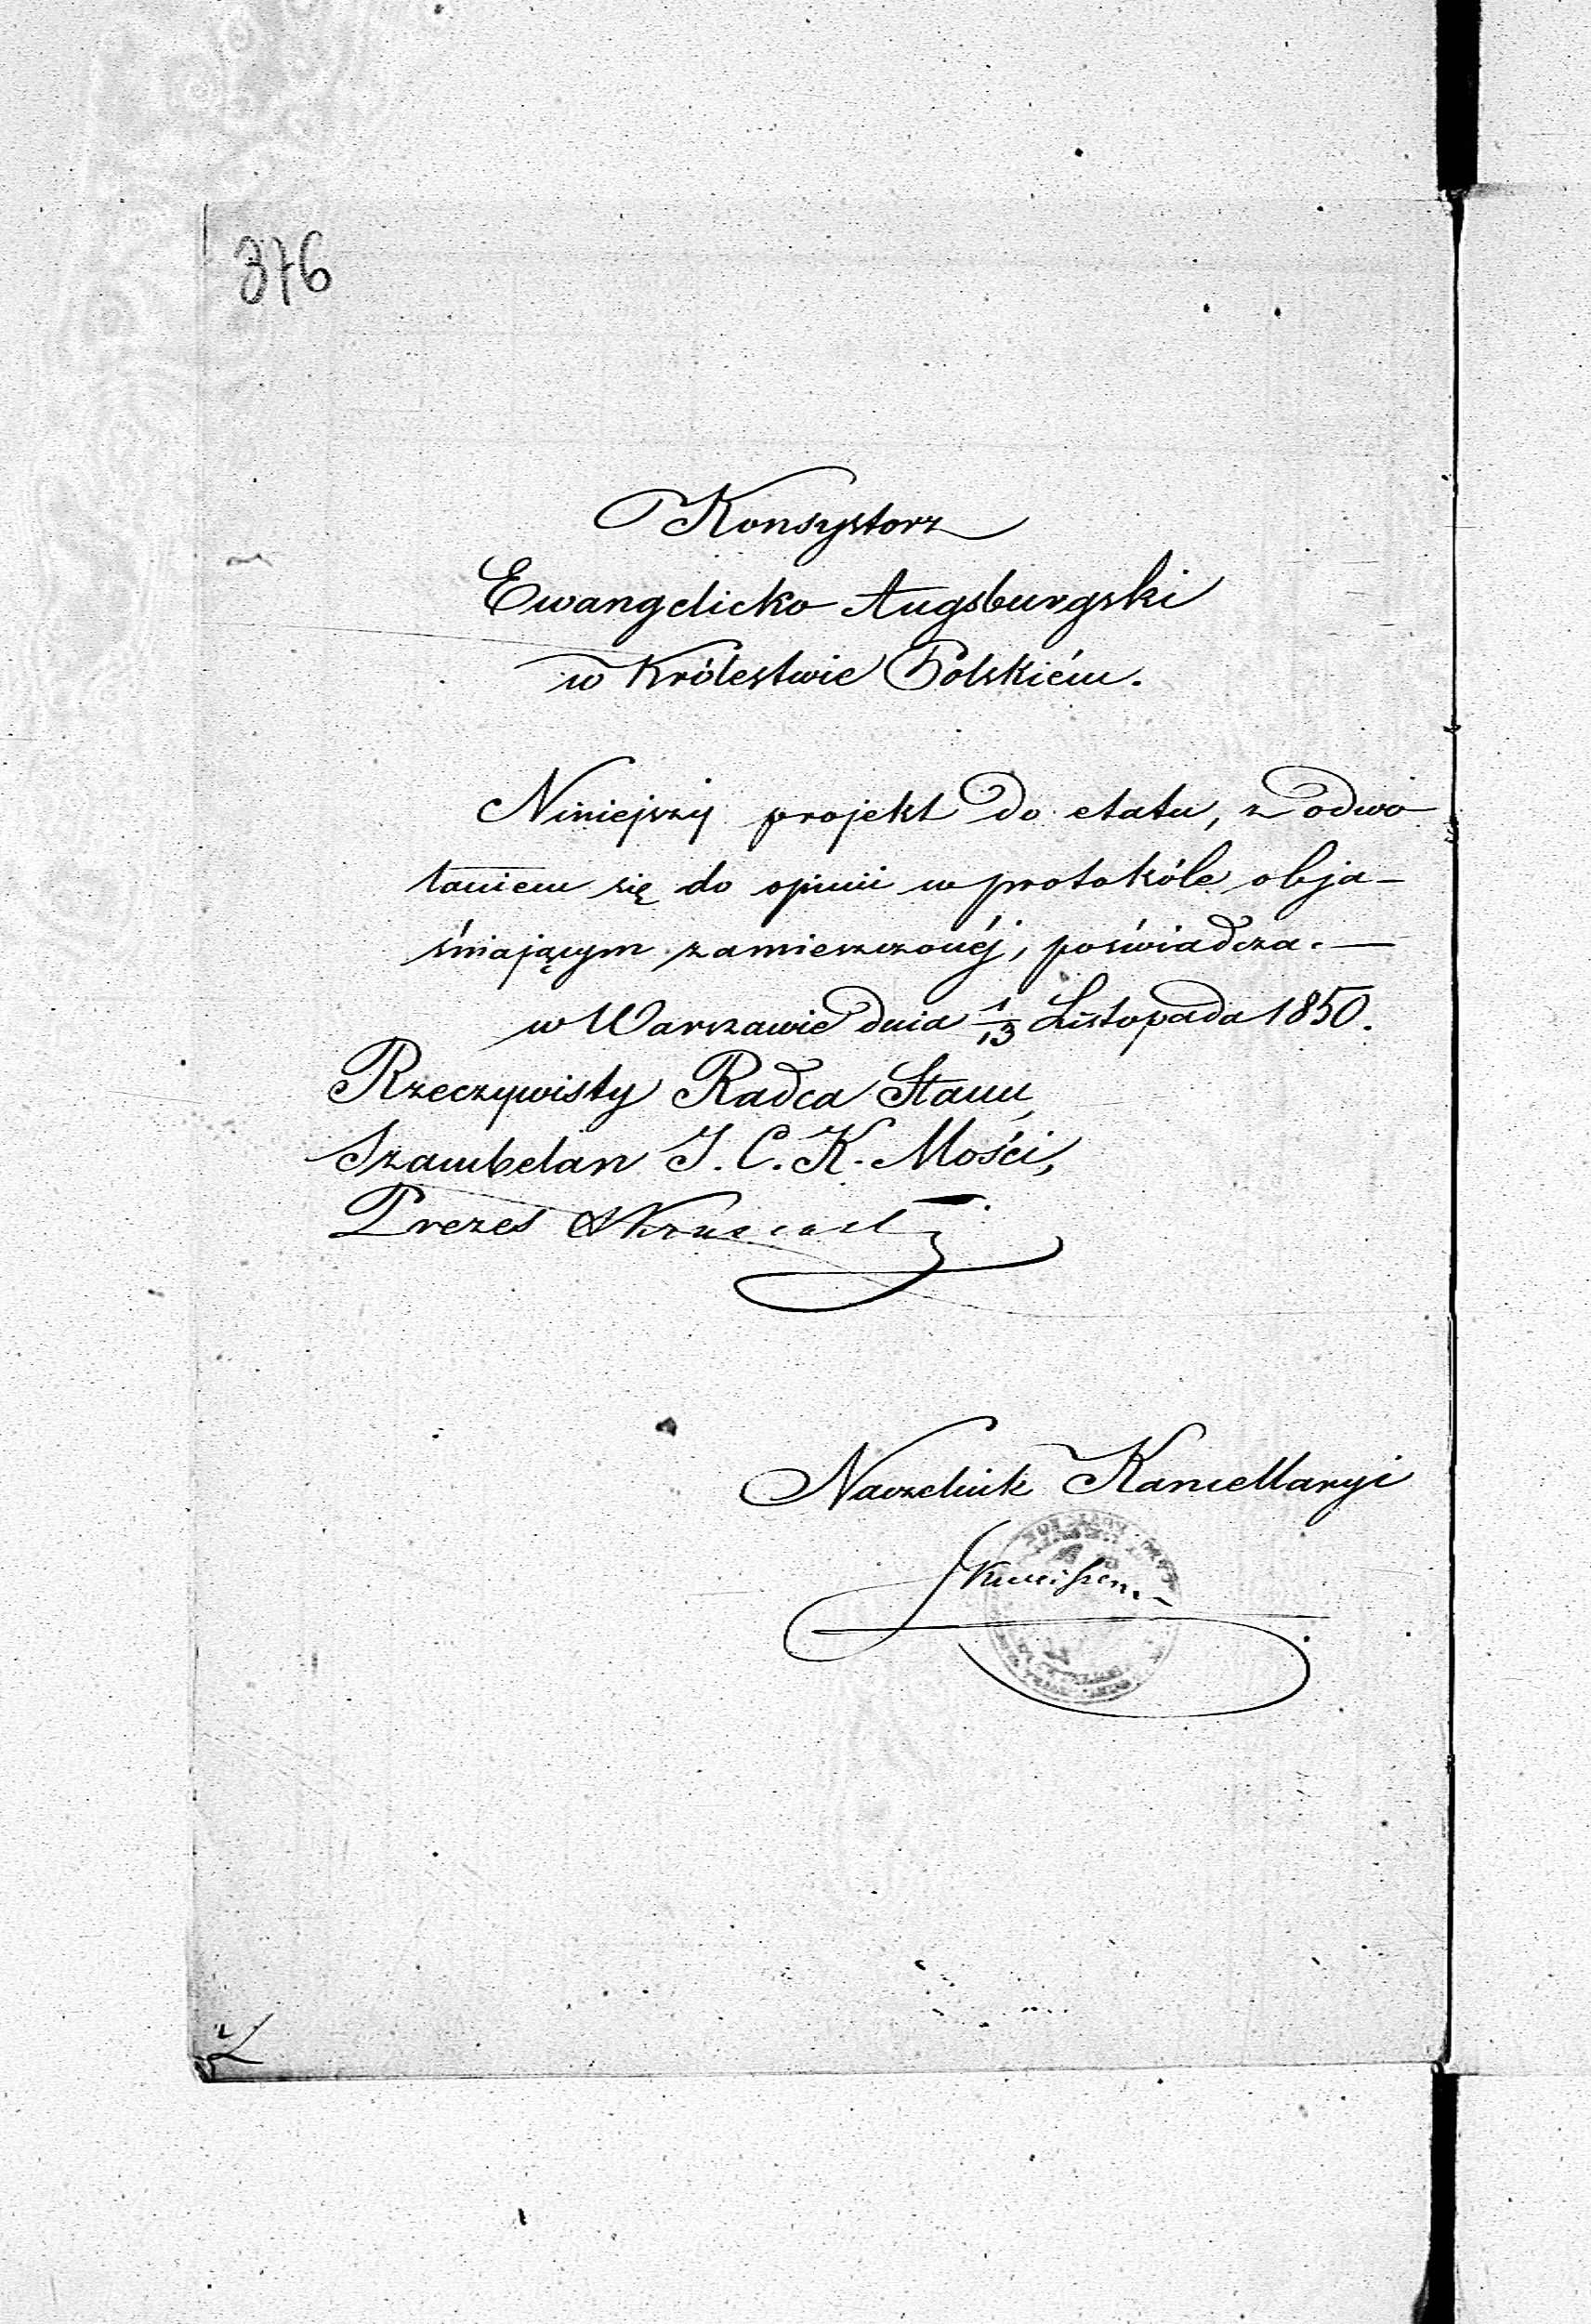 376
Konsystorz
Ewangelicko Augsburgski
w Królestwie Polskiém.
Niniejszy projekt do etatu, z odwo
łaniem się do opinii w protokóle obja-
śniającym zamieszczonéj, poświadcza.—
w Warszawie dnia 1/13 Listopada 1850.
Rzeczywisty Radca Stanu,
Szambelan J. C. K. Mości,
Prezes
Naczelnik Kancellaryi